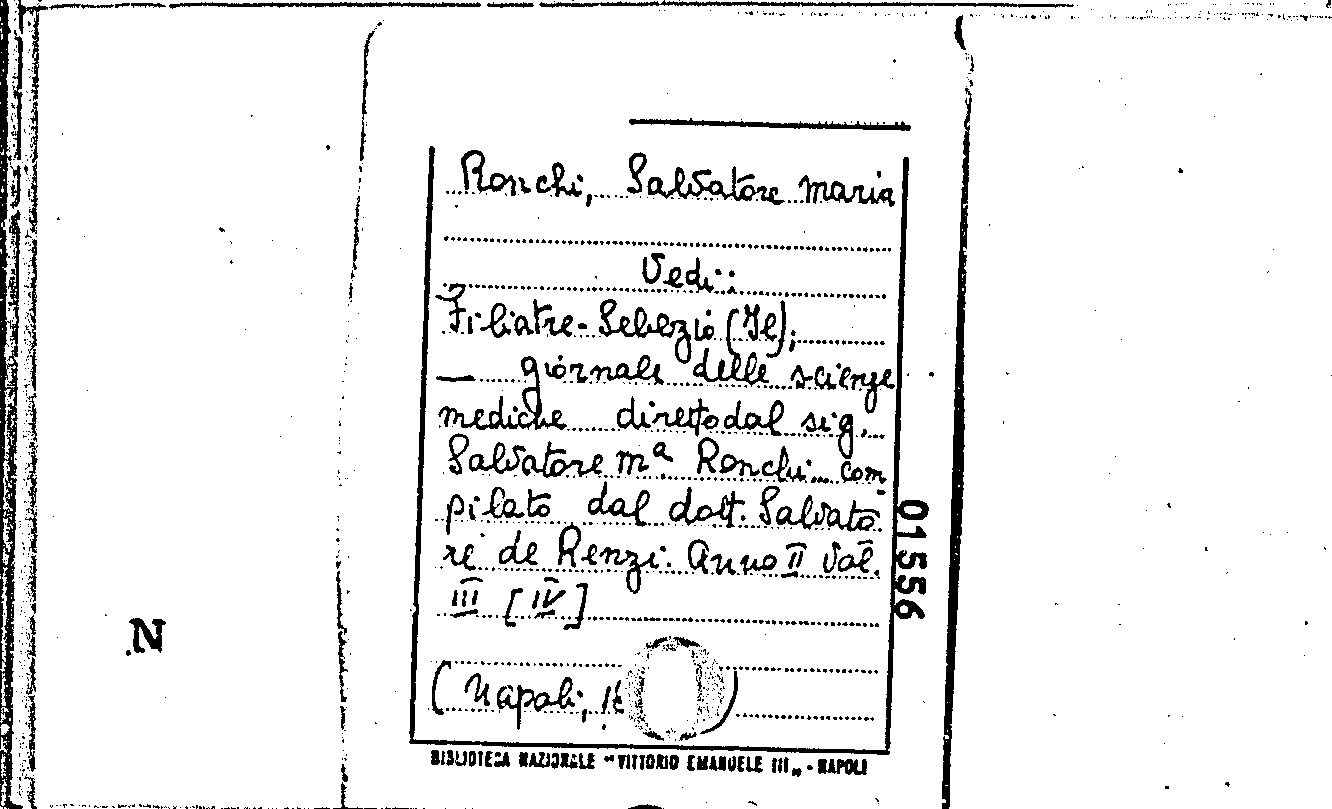 Ronchi, Salvatore Maria
Vedi:
Filiatre-Sebezio (Il);
— giornale delle scienze
mediche diretto dal sig.
Salvatore Mª Ronchi... com
pilato dal dott. Salvato
re de Renzi. Anno II Vol.
III [IV]
(Napoli, )
01556
N
BIBLIOTECA NAZIONALE "VITTORIO EMANUELE III„ - NAPOLI